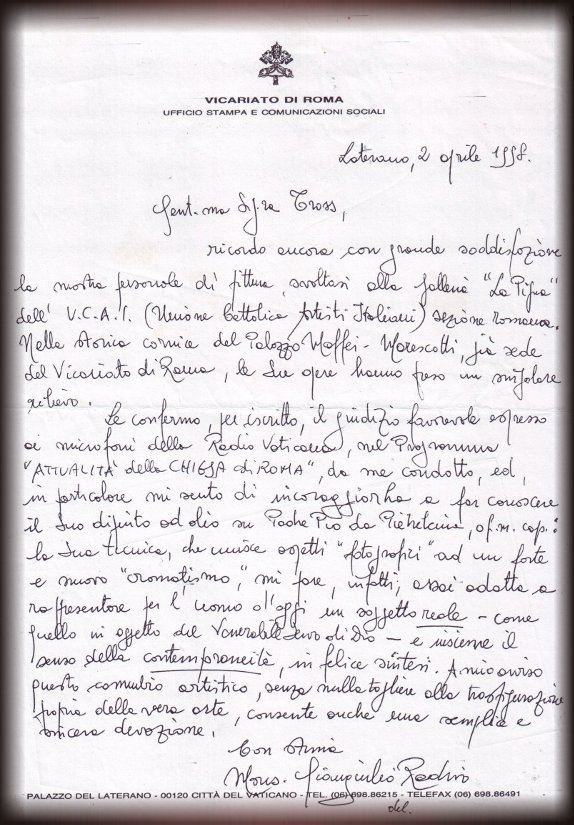 VICARIATO DI ROMA
UFFICIO STAMPA E COMUNICAZIONI SOCIALI
Laterano, 2 aprile 1998.
Gent.ma Sig.ra Tross,
ricordo ancora con grande soddisfazione
la mostra personale di pittura, svoltasi alla galleria "La Pigna"
dell' U.C.A.I. (Unione Cattolica Artisti Italiani) sezione romana.
Nella storica cornice del Palazzo Maffei-Marescotti, già sede
del Vicariato di Roma, le Sue opere hanno preso un singolare
rilievo.
Le confermo, per iscritto, il giudizio favorevole espresso
ai microfoni della Radio Vaticana, nel Programma
"ATTUALITÀ della CHIESA di ROMA", da me condotto, ed,
in particolare mi sento di incoraggiarLa a far conoscere
il Suo dipinto ad olio su Padre Pio da Pietrelcina, o.f.m. cap.:
la Sua tecnica, che unisce aspetti "fotografici" ad un forte
e nuovo "cromatismo," mi pare, infatti, assai adatta a
rappresentare per l'uomo d'oggi un soggetto reale - come
quello in oggetto del Venerabile Servo di Dio - e insieme il
senso della contemporaneità, in felice sintesi. A mio avviso
questo connubio artistico, senza nulla togliere alla trasfigurazione
propria della vera arte, consente anche una semplice e
sincera devozione.
Con stima
Mons. Giangiulio Radivo
PALAZZO DEL LATERANO - 00120 CITTÀ DEL VATICANO - TEL. (06) 698.86215 - TELEFAX (06) 698.86491
del.